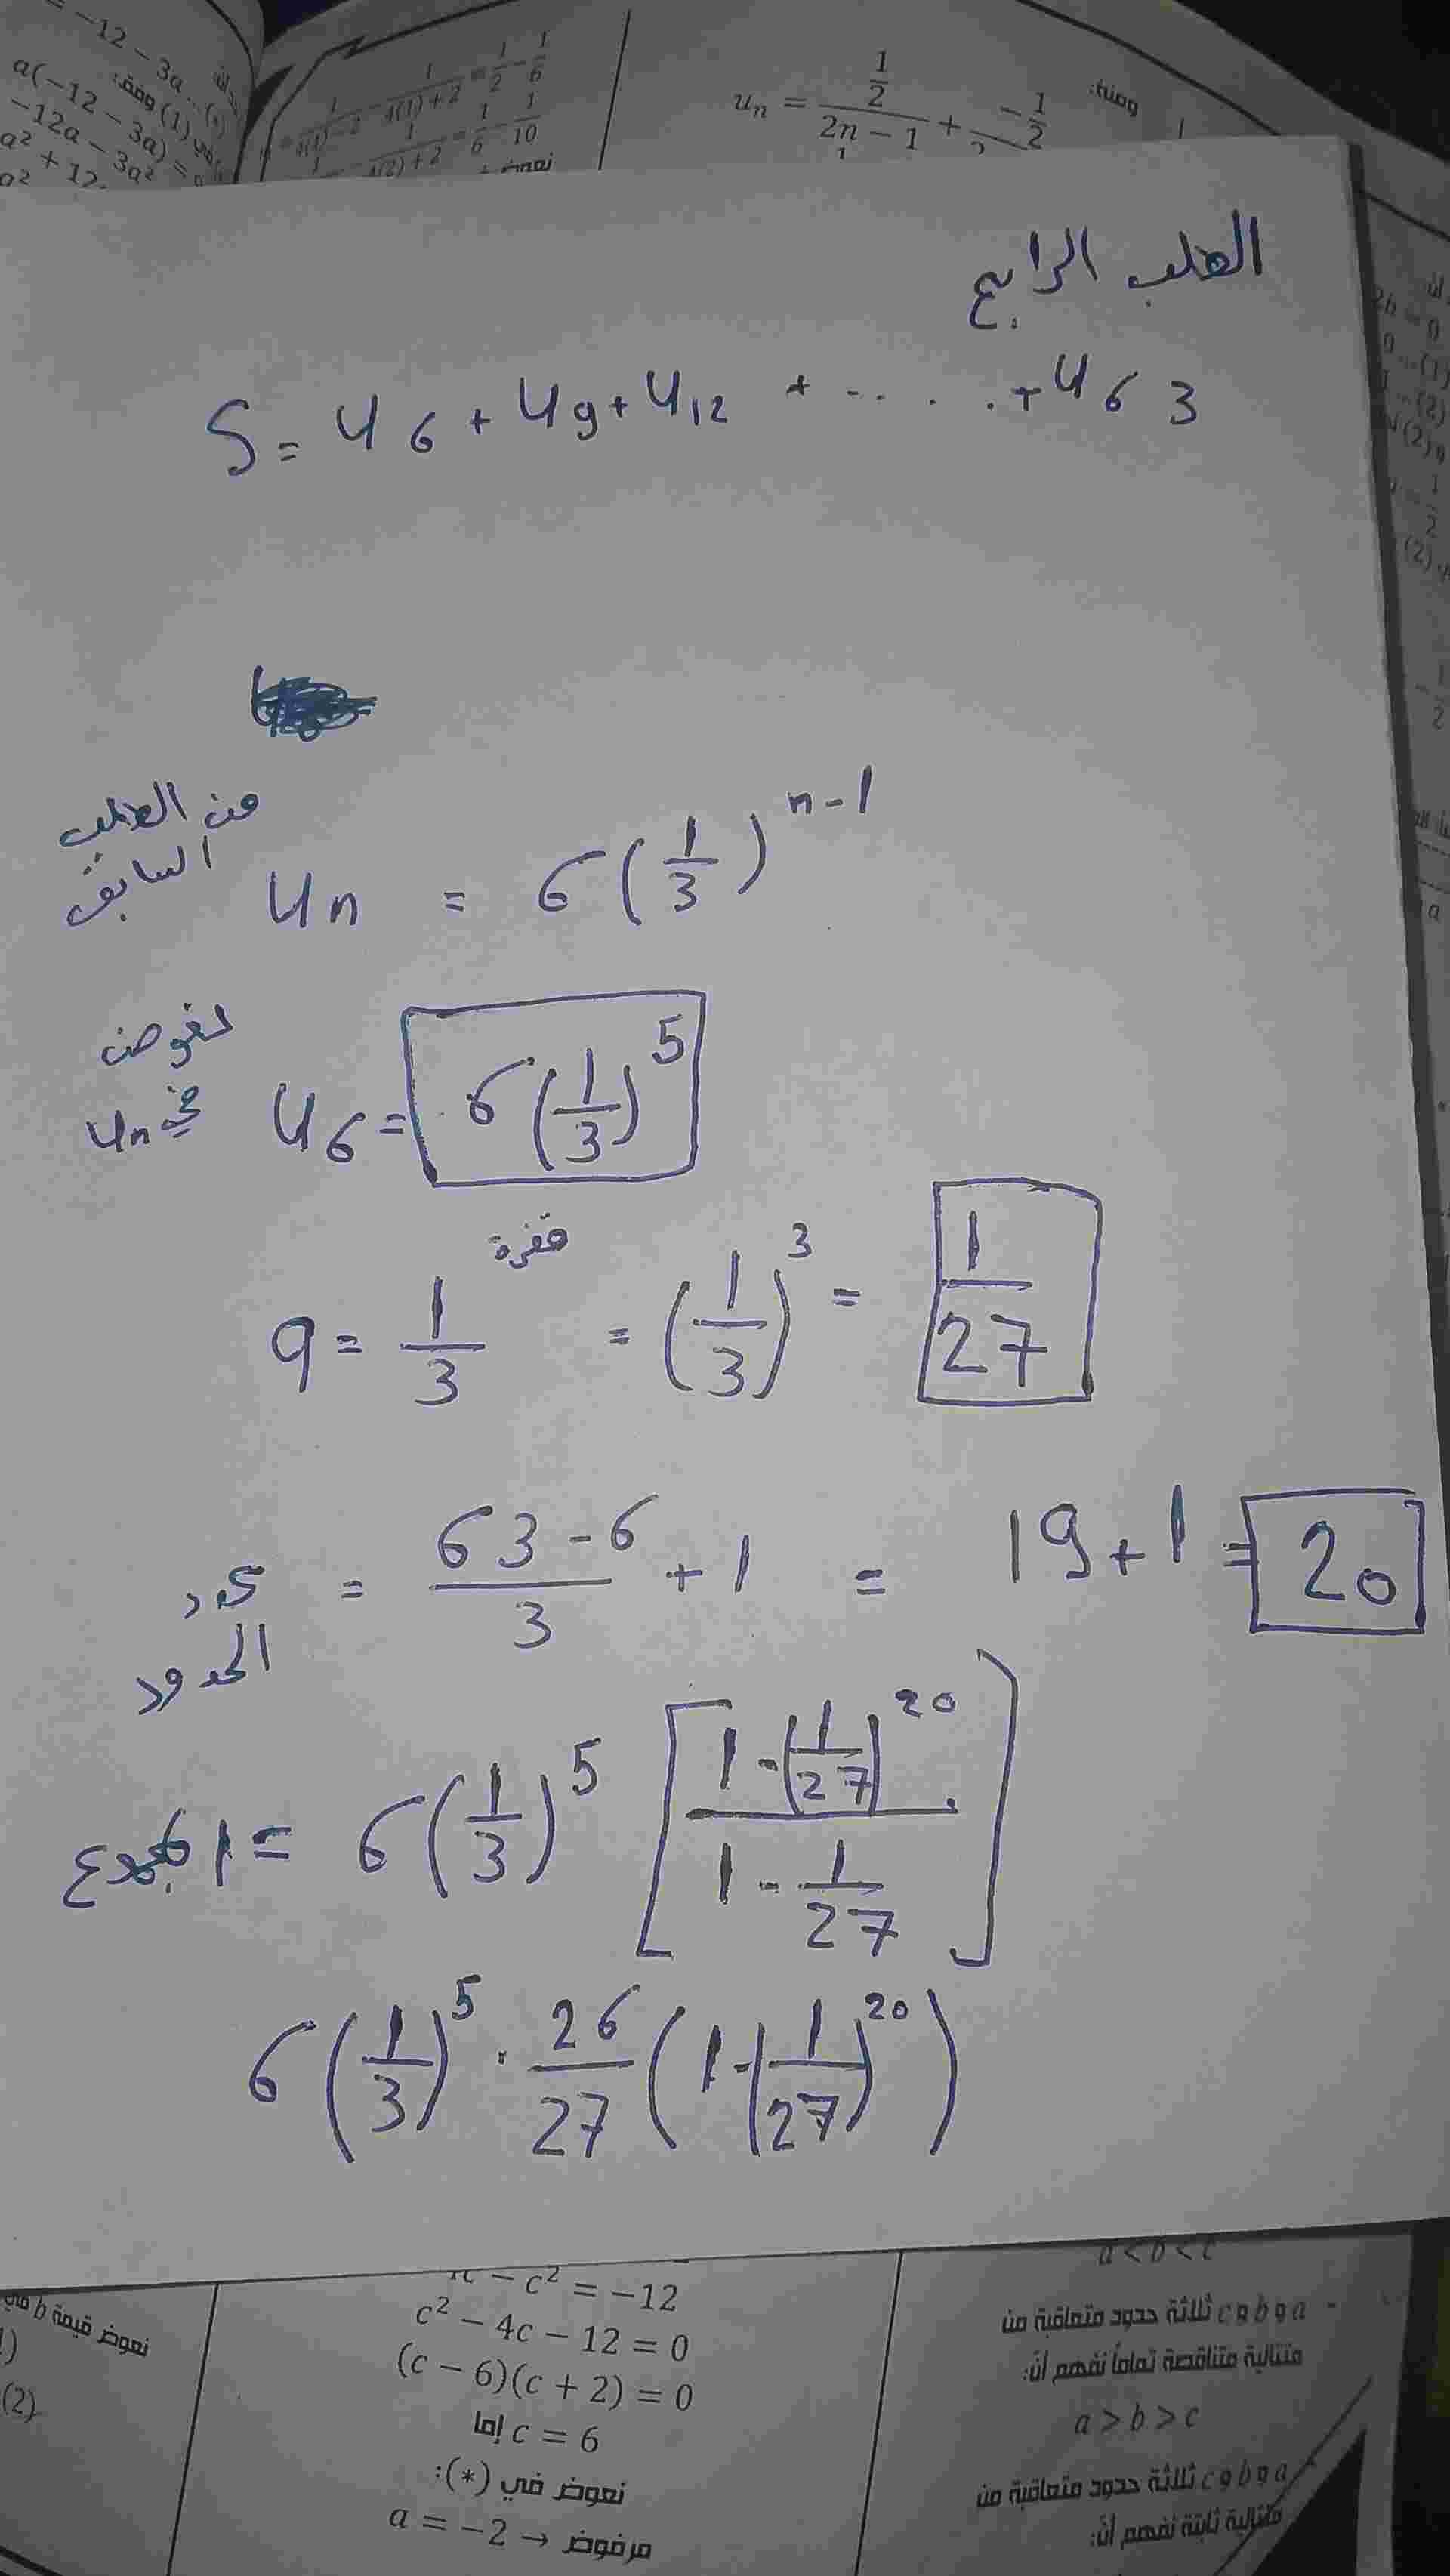 = -12 - 3a ... (*)
a(-12 - 3a) =
-12a - 3a² =
a² + 12
a²
1/(4(1)-2) - 1/(4(1)+2) = 1/2 - 1/6
1/(4(2)+2) = 1/6 - 1/10
نعوض
uₙ = (1/2)/(2n - 1) + (-1/2)
ومنه:
الطلب الرابع
S = u₆ + u₉ + u₁₂ + ..... + u₆₃
من الطلب السابق uₙ = 6(1/3)ⁿ⁻¹
نعوض في uₙ u₆ = 6(1/3)⁵
قفزة
q = 1/3 = (1/3)³ = 1/27
عدد الحدود = (63 - 6)/3 + 1 = 19 + 1 = 20
المجموع = 6(1/3)⁵ [(1 - (1/27)²⁰)/(1 - 1/27)]
6(1/3)⁵ · 26/27 (1 - (1/27)²⁰)
نعوض قيمة b في
(2)
- c² = -12
c² - 4c - 12 = 0
(c - 6)(c + 2) = 0
إما c = 6
نعوض في (*):
a = -2 → مرفوض
a < b < c
- a و b و c ثلاثة حدود متعاقبة من
متتالية متناقصة تماماً نفهم أن:
a > b > c
- a و b و c ثلاثة حدود متعاقبة من
متتالية ثابتة نفهم أن: